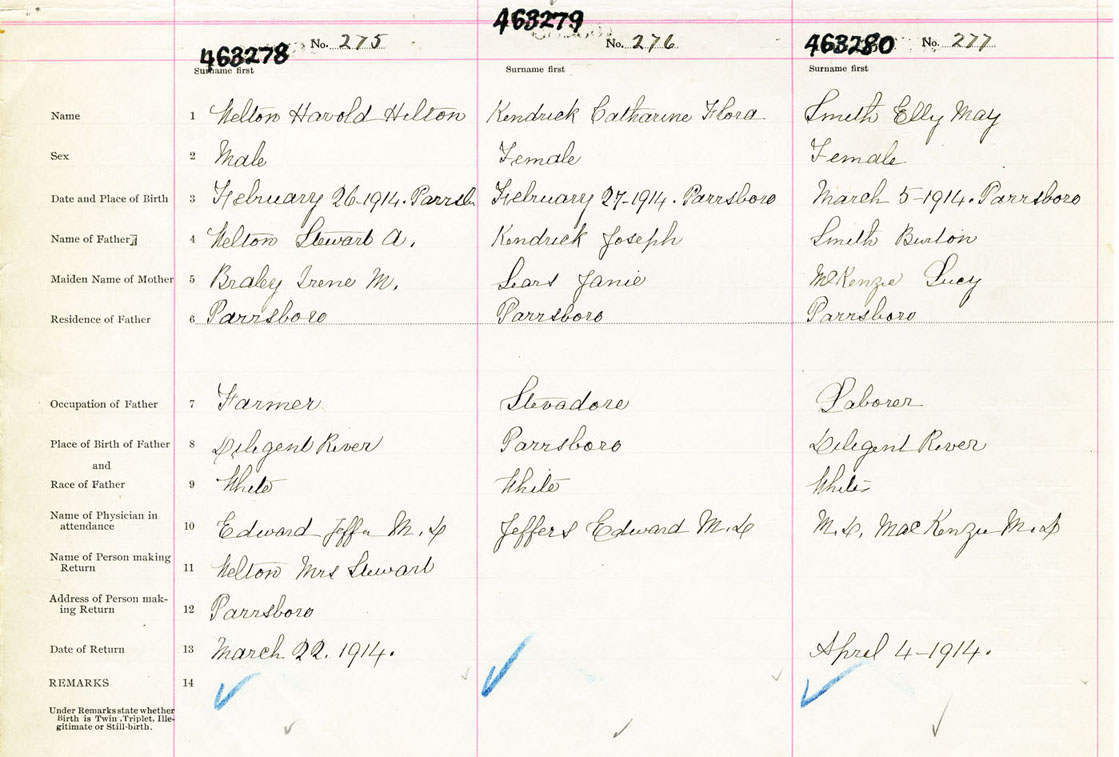 463278 No. 275 463279 No. 276 463280 No. 277
Surname first Surname first Surname first
Name 1 Welton Harold Hilton Kendrick Catharine Flora Smith Elly May
Sex 2 Male Female Female
Date and Place of Birth 3 February 26-1914. Parrsb February 27-1914. Parrsboro March 5-1914. Parrsboro
Name of Father 4 Welton Stewart A. Kendrick Joseph Smith Burton
Maiden Name of Mother 5 Braley Irene M. Sears Janie McKenzie Lucy
Residence of Father 6 Parrsboro Parrsboro Parrsboro
Occupation of Father 7 Farmer Stevadore Laborer
Place of Birth of Father 8 Diligent River Parrsboro Diligent River
and
Race of Father 9 White White White
Name of Physician in
attendance 10 Edward Jeffers M.D Jeffers Edward M.D M.D. MacKenzie M.D
Name of Person making
Return 11 Welton Mrs Stewart
Address of Person mak-
ing Return 12 Parrsboro
Date of Return 13 March 22. 1914. April 4-1914.
REMARKS 14
Under Remarks state whether
Birth is Twin, Triplet, Ille-
gitimate or Still-birth.